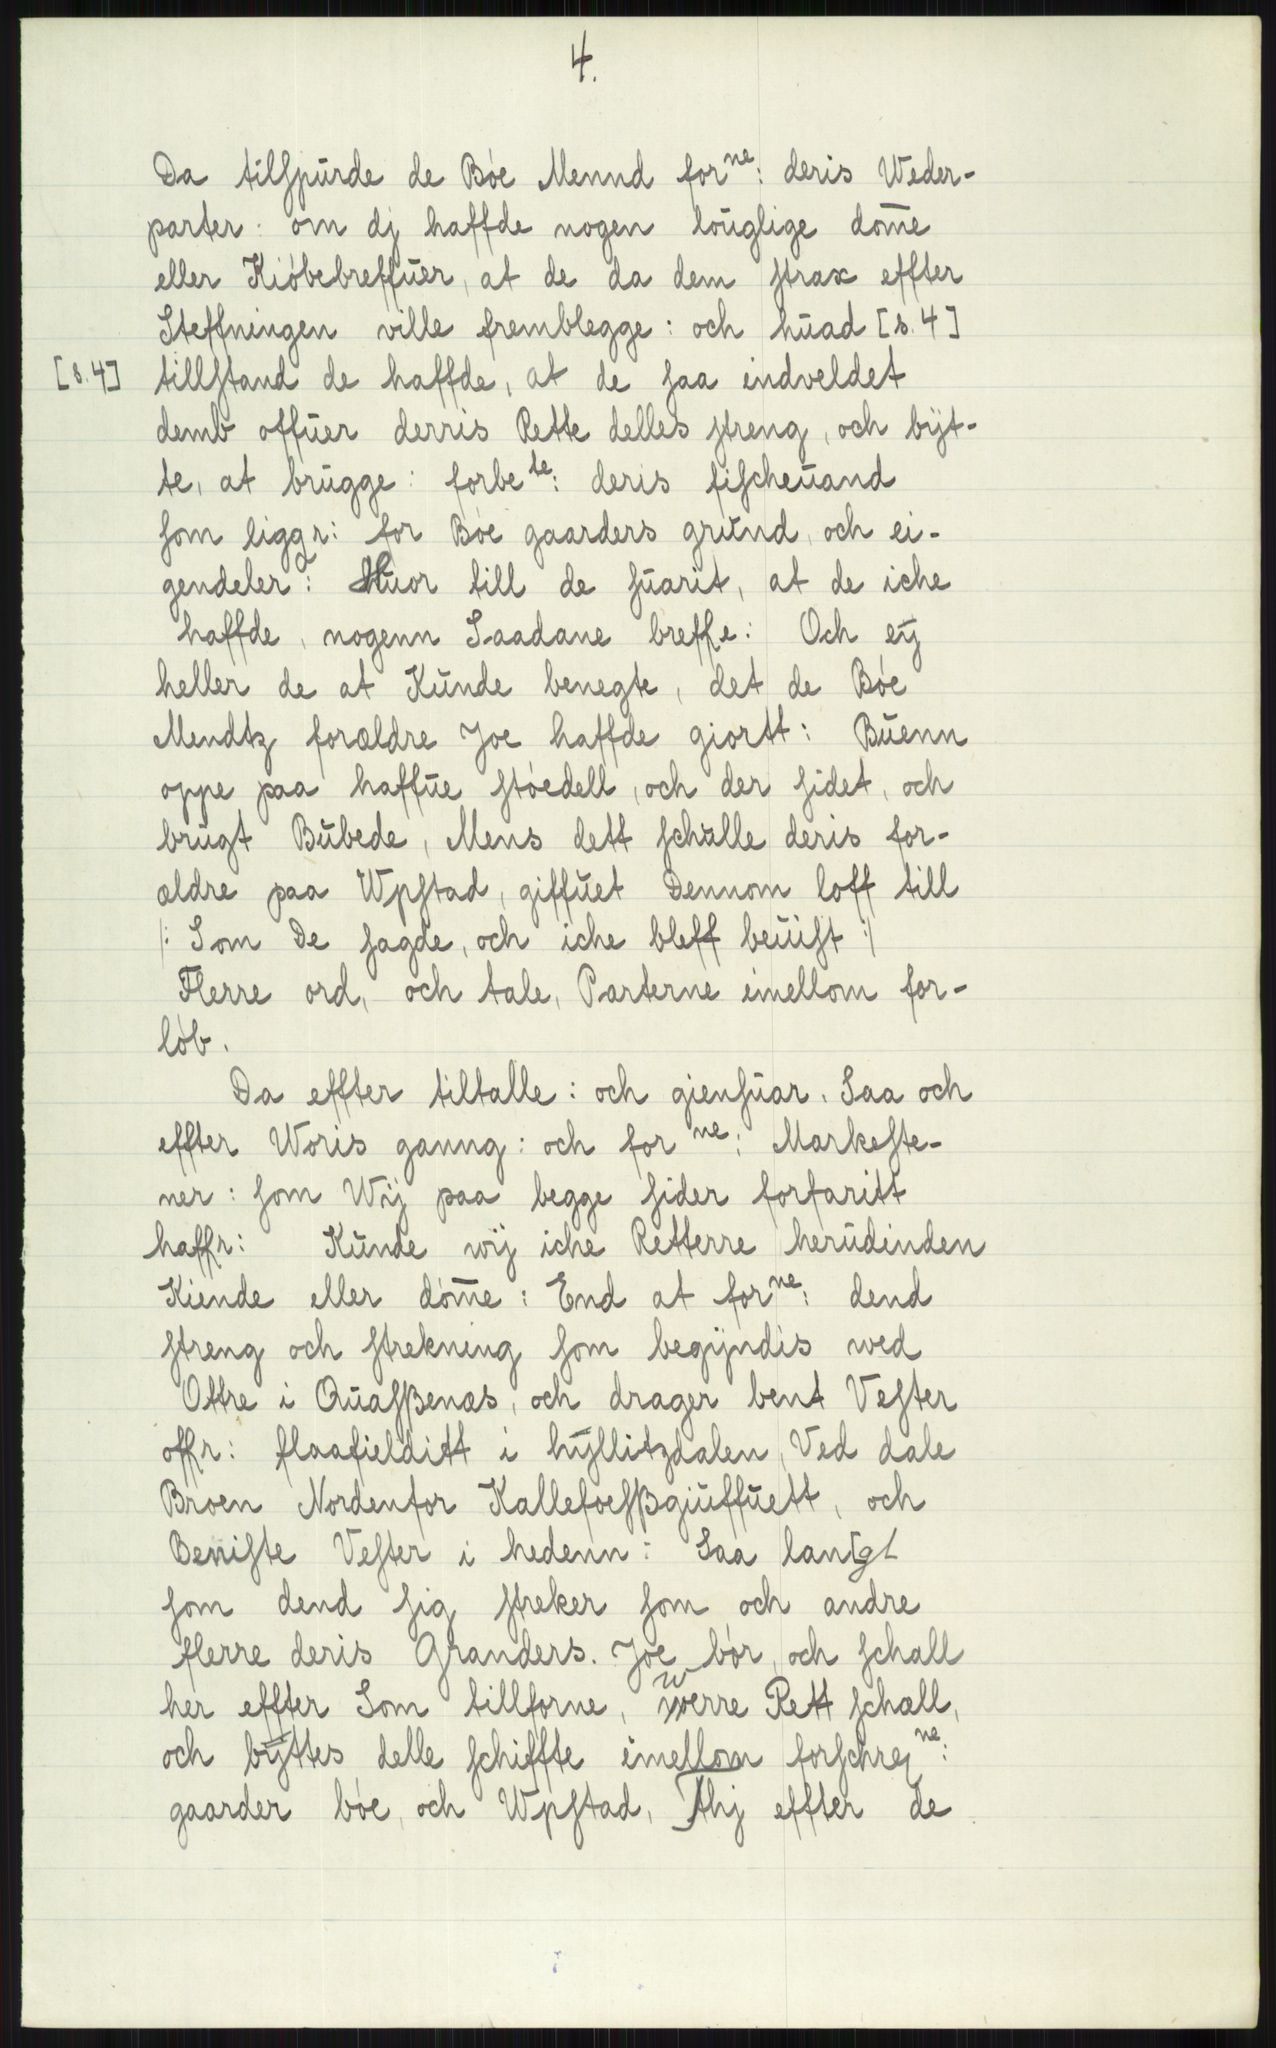 4.
Da tilspurde de Bóe Mennd for^ne: deris Weder-
parter: om dj haffde nogen louglige dom̄e
eller Kióbebreffuer, at de da dem strax effter
Steffningen ville fremblegge: och huad [s. 4]
[s. 4] tillstand de haffde, at de saa indveldet
demb offuer derris Rette delles streng, och byt-
te, at brugge: forbe^te: deris fischeuand
som liggr: for Bóe gaarders grund, och ei-
gendeler: Huor till de suarit, at de iche
haffde, nogenn Saadane breffe: Och eÿ
heller de at Kunde benegte, det de Bóe
Mendtz forældre Joe haffde giortt: Buenn
oppe paa haffue stóedell, och der sidet, och
brugt Bubede, Mens dett schulle deris for-
ældre paa Wpstad, giffuet Dennom loff till
/: Som De sagde, och iche bleff beuist :/
Flerre ord, och tale, Parterne imellom for-
lób.
Da effter tiltalle: och giensuar. Saa och
effter Woris ganng: och for^ne: Markeste-
ner: som Wij paa begge sider forfaritt
haffr: Kunde wij iche Retterre herudinden
Kiende eller dóm̄e: End at for^ne: dend
streng och strekning som begyndis wed
Ottre i Quassßenæs, och drager bent Vester
offr: flaafielditt i hyllitzdalen, Ved dale
Broen Nordenfor Kallefoessßgiuffuett, och
Beniste Vester i hedenn: Saa lan[gt
som dend sig streker som och andre
flerre deris Granders. Joe bór, och schall
her effter Som tillforne, werre Rett schæll,
och byttes delle schiffte imellom forschrej^ne:
gaarder bóe, och Wpstad, Thj effter de